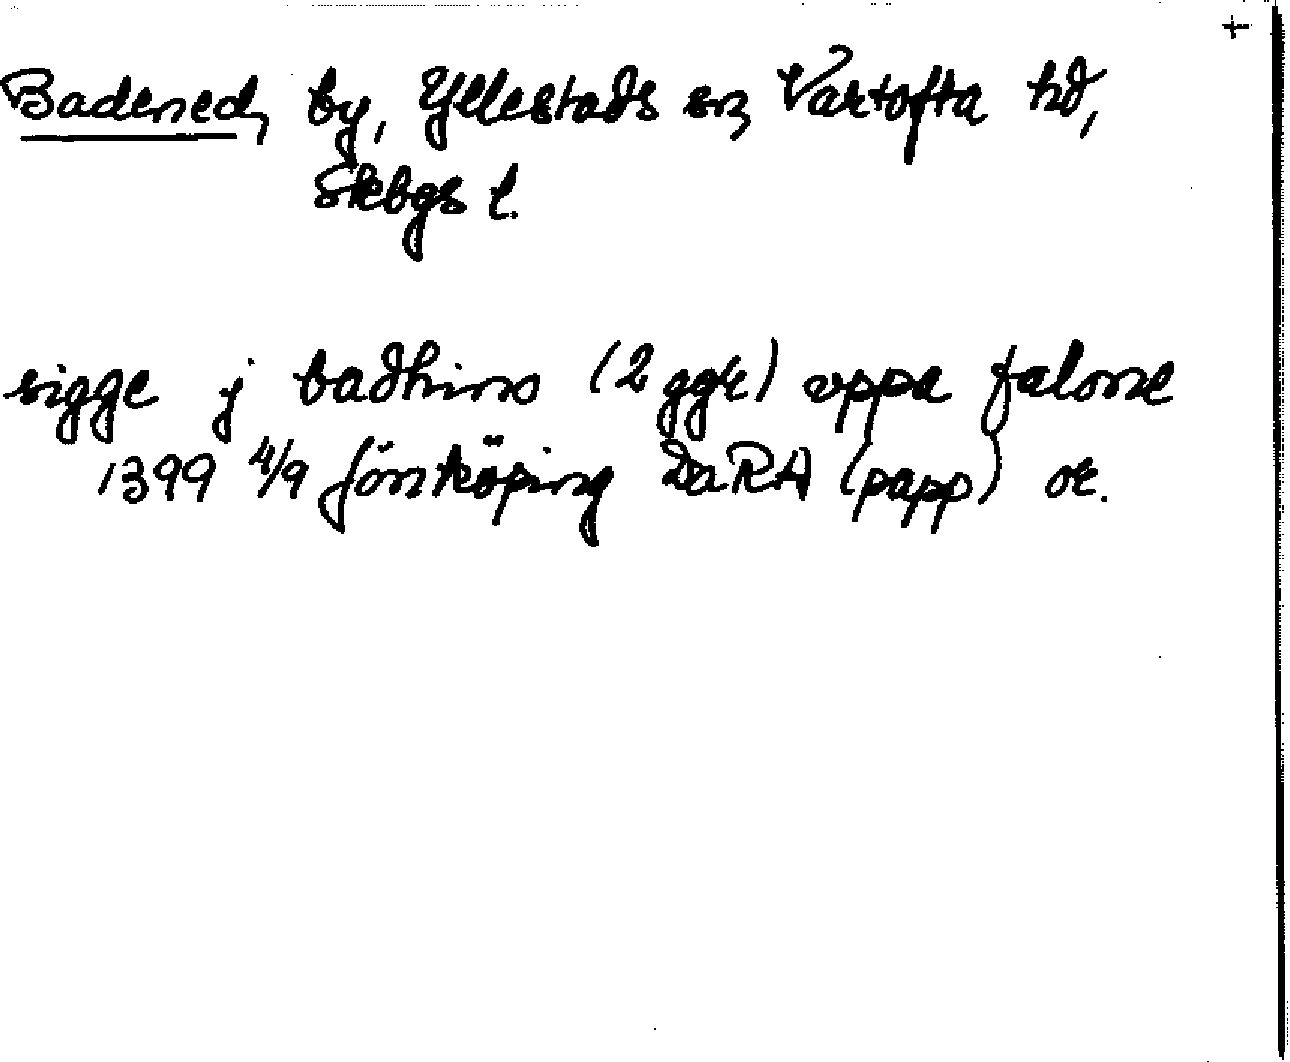 +
Badened, by, Yllestads sn, Vartofta hd,
Skbgs l.
sigge j badhino (2 ggr) vppa falone
1399 4/9 Jönköping DaRA (papp) or.